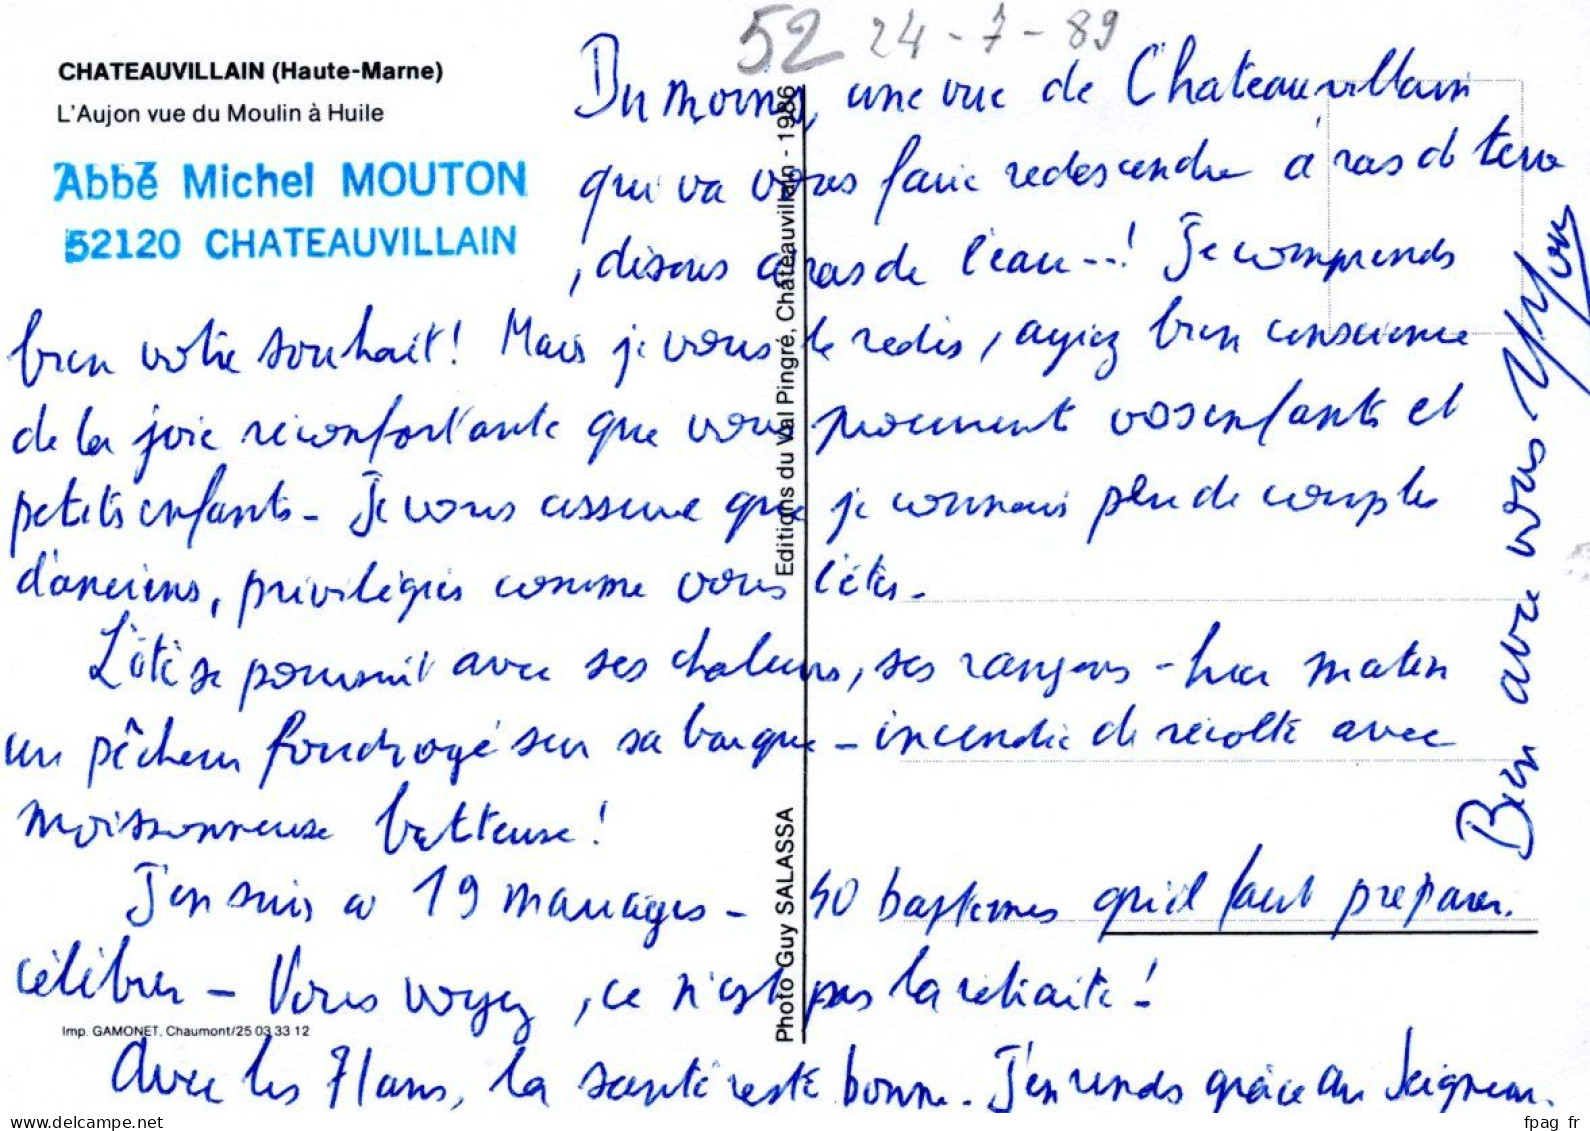 52 24-7-89
CHATEAUVILLAIN (Haute-Marne)
L'Aujon vue du Moulin à Huile
Abbé Michel MOUTON
52120 CHATEAUVILLAIN
Du moins, une vue de Chateauvillain
qui va vous faire redescendre à ras de terre
, disons à ras de l'eau --! Je comprends
bien votre souhait! Mais je vous le redis, ayiez bien conscience
de la joie réconfortante que vous procurent vos enfants et
petits enfants - Je vous assure que je connais peu de couples
d'anciens, privilégiés comme vous l'êtes.
L'été se poursuit avec ses chaleurs, ses rangers - hier matin
un pêcheur foudroyé sur sa barque - incendie de récolte avec
moissonneuse batteuse!
J'en suis à 19 mariages - 40 baptêmes qu'il faut préparer.
célébrer - Vous voyez, ce n'est pas la retraite!
Avec les 71 ans, la santé reste bonne. J'en rends grâce au Seigneur.
Bien avec vous
Editions du Val Pingré, Châteauvillain - 1986
Photo Guy SALASSA
Imp. GAMONET, Chaumont/25 03 33 12
delcampe.net
fpag_fr